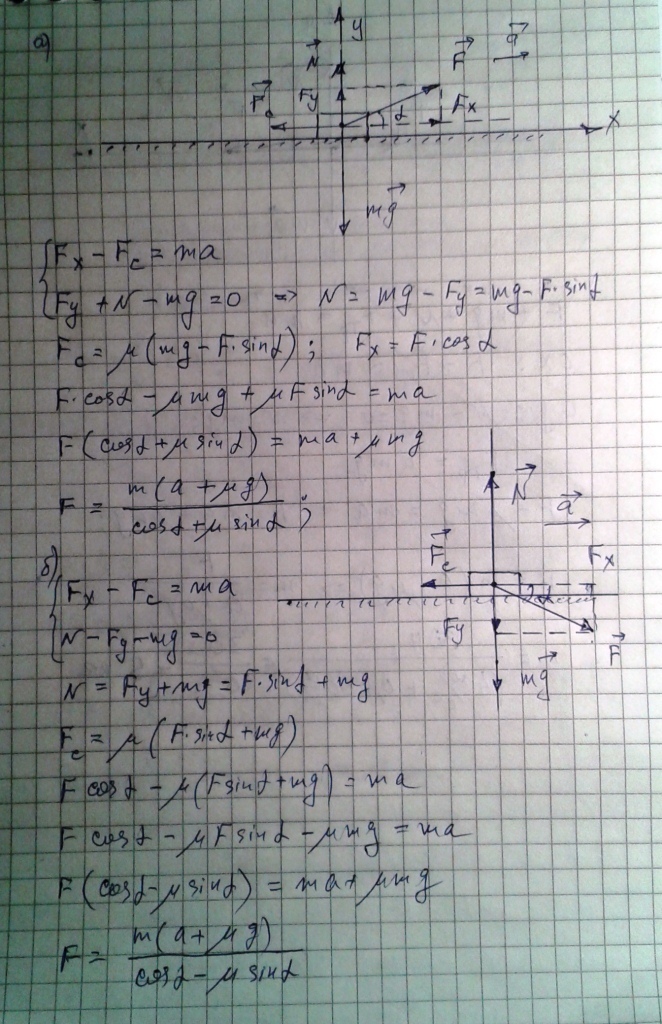 а)
y
N⃗
F⃗
a⃗
F⃗c
Fy
α
Fx
x
mg⃗
{ Fx − Fc = ma
Fy + N − mg = 0 => N = mg − Fy = mg − F·sinα
Fc = μ(mg − F·sinα); Fx = F·cosα
F·cosα − μmg + μF sinα = ma
F(cosα + μ sinα) = ma + μmg
F = m(a + μg) / (cosα + μ sinα);
N⃗
a⃗
F⃗c
Fx
α
Fy
F⃗
mg⃗
б)
{ Fx − Fc = ma
N − Fy − mg = 0
N = Fy + mg = F·sinα + mg
Fc = μ(F·sinα + mg)
F cosα − μ(F sinα + mg) = ma
F cosα − μF sinα − μmg = ma
F(cosα − μ sinα) = ma + μmg
F = m(a + μg) / (cosα − μ sinα)